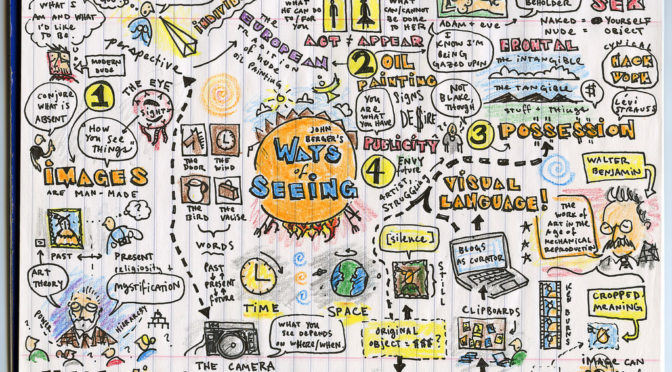 WHAT I
AM AND WHAT
I'D LIKE
TO BE.
MODERN
DUDE
perspective
INDIVID
THE
EUROPEAN
TRADITION
OF NUDE
OIL PAINTING
WHAT
HE CAN DO
TO/FOR
YOU
WHAT
CAN/CANNOT
BE DONE
TO HER
ACT ≠ APPEAR
ADAM + EVE
BEHOLDER
NAKED = YOURSELF
NUDE = OBJECT
SEX
I
KNOW I'M
BEING
GAZED UPON
FRONTAL
THE INTANGIBLE
THE TANGIBLE
STUFF + THINGS
CYNICAL
HACK
WORK
$
LÉVI
STRAUSS
CONJURE
WHAT IS
ABSENT
1
THE EYE
SIGHT
HOW
YOU SEE
THINGS
IMAGES
ARE MAN-MADE
2 OIL
PAINTING
YOU
ARE
WHAT
YOU HAVE
SIGNS
OF
DE$IRE
NOT
BLAKE,
THOUGH
3 POSSESSION
PUBLICITY
4
ENVY
FUTURE
ARTISTS
STRUGGLING
JOHN
BERGER'S
WAYS
of
SEEING
THE
DOOR
THE
WIND
THE
BIRD
THE
VALISE
WORDS
PAST
PRESENT
FUTURE
VISUAL
LANGUAGE!
WALTER
BENJAMIN
THE WORK
OF
ART IN THE
AGE OF
MECHANICAL
REPRODUCTION
?
PAST
PRESENT
ART
THEORY
religiosity +
MYSTIFICATION
POWER
HIERARCHY
TIME
SPACE
[SILENCE]
STILL
BLOGS
AS CURATOR
CLIPBOARDS
KEN BURNS
CROPPED
MEANING
ORIGINAL
OBJECT = $$$
?
THE CAMERA
WHAT YOU
SEE DEPENDS
ON WHERE/WHEN.
IMAGE CAN